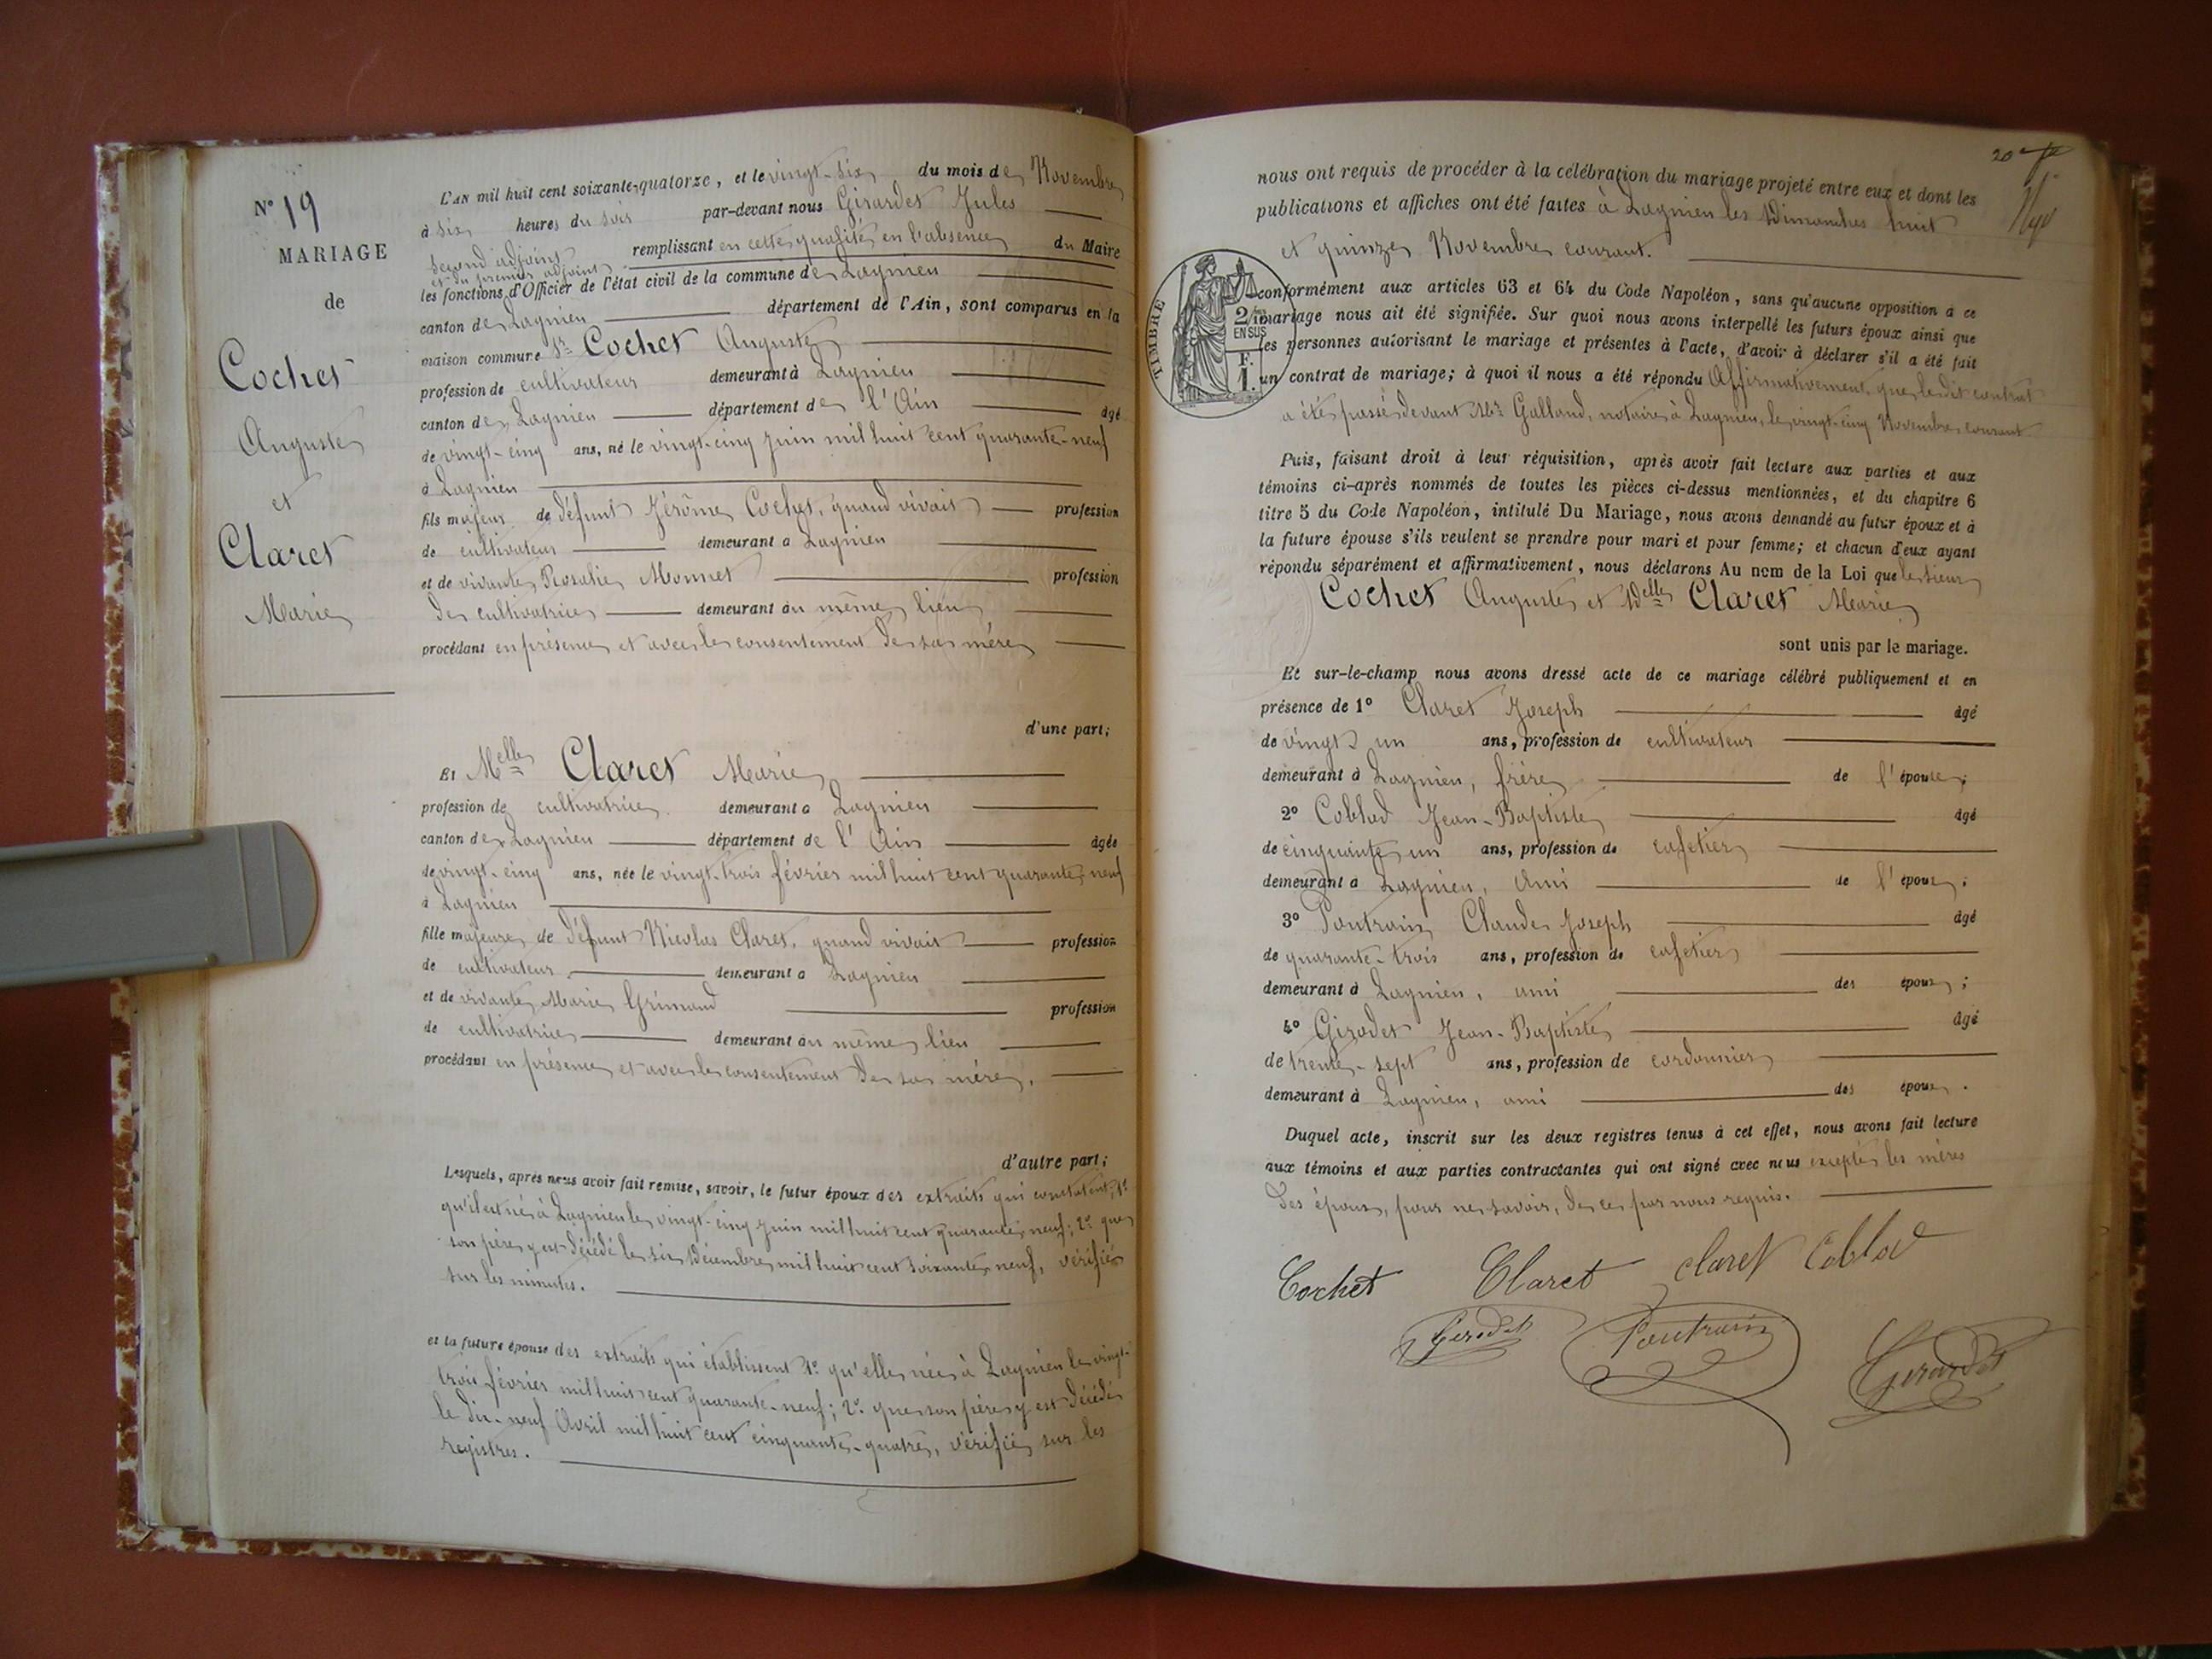 N° 19
MARIAGE
de
Cochet
Auguste
et
Claret
Marie
L'AN mil huit cent soixante-quatorze, et le vingt-six du mois de Novembre
à six heures du soir par-devant nous Girardet Jules
second adjoint remplissant en cette qualité en l'absence du Maire
et du premier adjoint
les fonctions d'Officier de l'état civil de la commune de Lagnieu
canton de Lagnieu département de l'Ain, sont comparus en la
maison commune Sr Cochet Auguste
profession de cultivateur demeurant à Lagnieu
canton de Lagnieu département de l'Ain âgé
de vingt-cinq ans, né le vingt-cinq juin mil huit cent quarante-neuf
à Lagnieu
fils majeur de défunt Jérôme Cochet, quand vivait profession
de cultivateur demeurant à Lagnieu
et de vivante Rosalie Monnet profession
de cultivatrice demeurant au même lieu
procédant en présence et avec le consentement de sa mère
d'une part;
Et Melle Claret Marie
profession de cultivatrice demeurant à Lagnieu
canton de Lagnieu département de l'Ain âgée
de vingt-cinq ans, née le vingt-trois février mil huit cent quarante-neuf
à Lagnieu
fille majeure de défunt Nicolas Claret, quand vivait profession
de cultivateur demeurant à Lagnieu
et de vivante Marie Grimaud profession
de cultivatrice demeurant au même lieu
procédant en présence et avec le consentement de sa mère,
d'autre part;
Lesquels, après nous avoir fait remise, savoir, le futur époux des extraits qui constatent, 1°
qu'il est né à Lagnieu le vingt-cinq juin mil huit cent quarante-neuf; 2° que
son père y est décédé le six Décembre mil huit cent soixante-neuf, vérifiés
sur les minutes.
et la future épouse des extraits qui établissent 1° qu'elle née à Lagnieu le vingt-
trois février mil huit cent quarante-neuf; 2° que son père y est décédé
le dix-neuf Avril mil huit cent cinquante-quatre, vérifiés sur les
registres.
nous ont requis de procéder à la célébration du mariage projeté entre eux et dont les
publications et affiches ont été faites à Lagnieu les Dimanches huit
et quinze Novembre courant.
conformément aux articles 63 et 64 du Code Napoléon, sans qu'aucune opposition à ce
mariage nous ait été signifiée. Sur quoi nous avons interpellé les futurs époux ainsi que
les personnes autorisant le mariage et présentes à l'acte, d'avoir à déclarer s'il a été fait
un contrat de mariage; à quoi il nous a été répondu Affirmativement, que ledit contrat
a été passé devant Me Galland, notaire à Lagnieu, le vingt-cinq Novembre courant.
TIMBRE
2/10mes
EN SUS
F.
1.
Puis, faisant droit à leur réquisition, après avoir fait lecture aux parties et aux
témoins ci-après nommés de toutes les pièces ci-dessus mentionnées, et du chapitre 6
titre 5 du Code Napoléon, intitulé Du Mariage, nous avons demandé au futur époux et à
la future épouse s'ils veulent se prendre pour mari et pour femme; et chacun d'eux ayant
répondu séparément et affirmativement, nous déclarons Au nom de la Loi que le sieur
Cochet Auguste et Delle Claret Marie
sont unis par le mariage.
Et sur-le-champ nous avons dressé acte de ce mariage célébré publiquement et en
présence de 1° Claret Joseph âgé
de vingt un ans, profession de cultivateur
demeurant à Lagnieu, frère de l'épouse;
2° Coblod Jean-Baptiste âgé
de cinquante un ans, profession de cafetier
demeurant à Lagnieu, ami de l'époux;
3° Poutrain Claude Joseph âgé
de quarante-trois ans, profession de cafetier
demeurant à Lagnieu, ami des époux;
4° Girodet Jean-Baptiste âgé
de trente-sept ans, profession de cordonnier
demeurant à Lagnieu, ami des époux.
Duquel acte, inscrit sur les deux registres tenus à cet effet, nous avons fait lecture
aux témoins et aux parties contractantes qui ont signé avec nous excepté les mères
des époux, pour ne savoir, de ce par nous requis.
Cochet Claret Claret Coblod
Girodet Poutrain Girardet